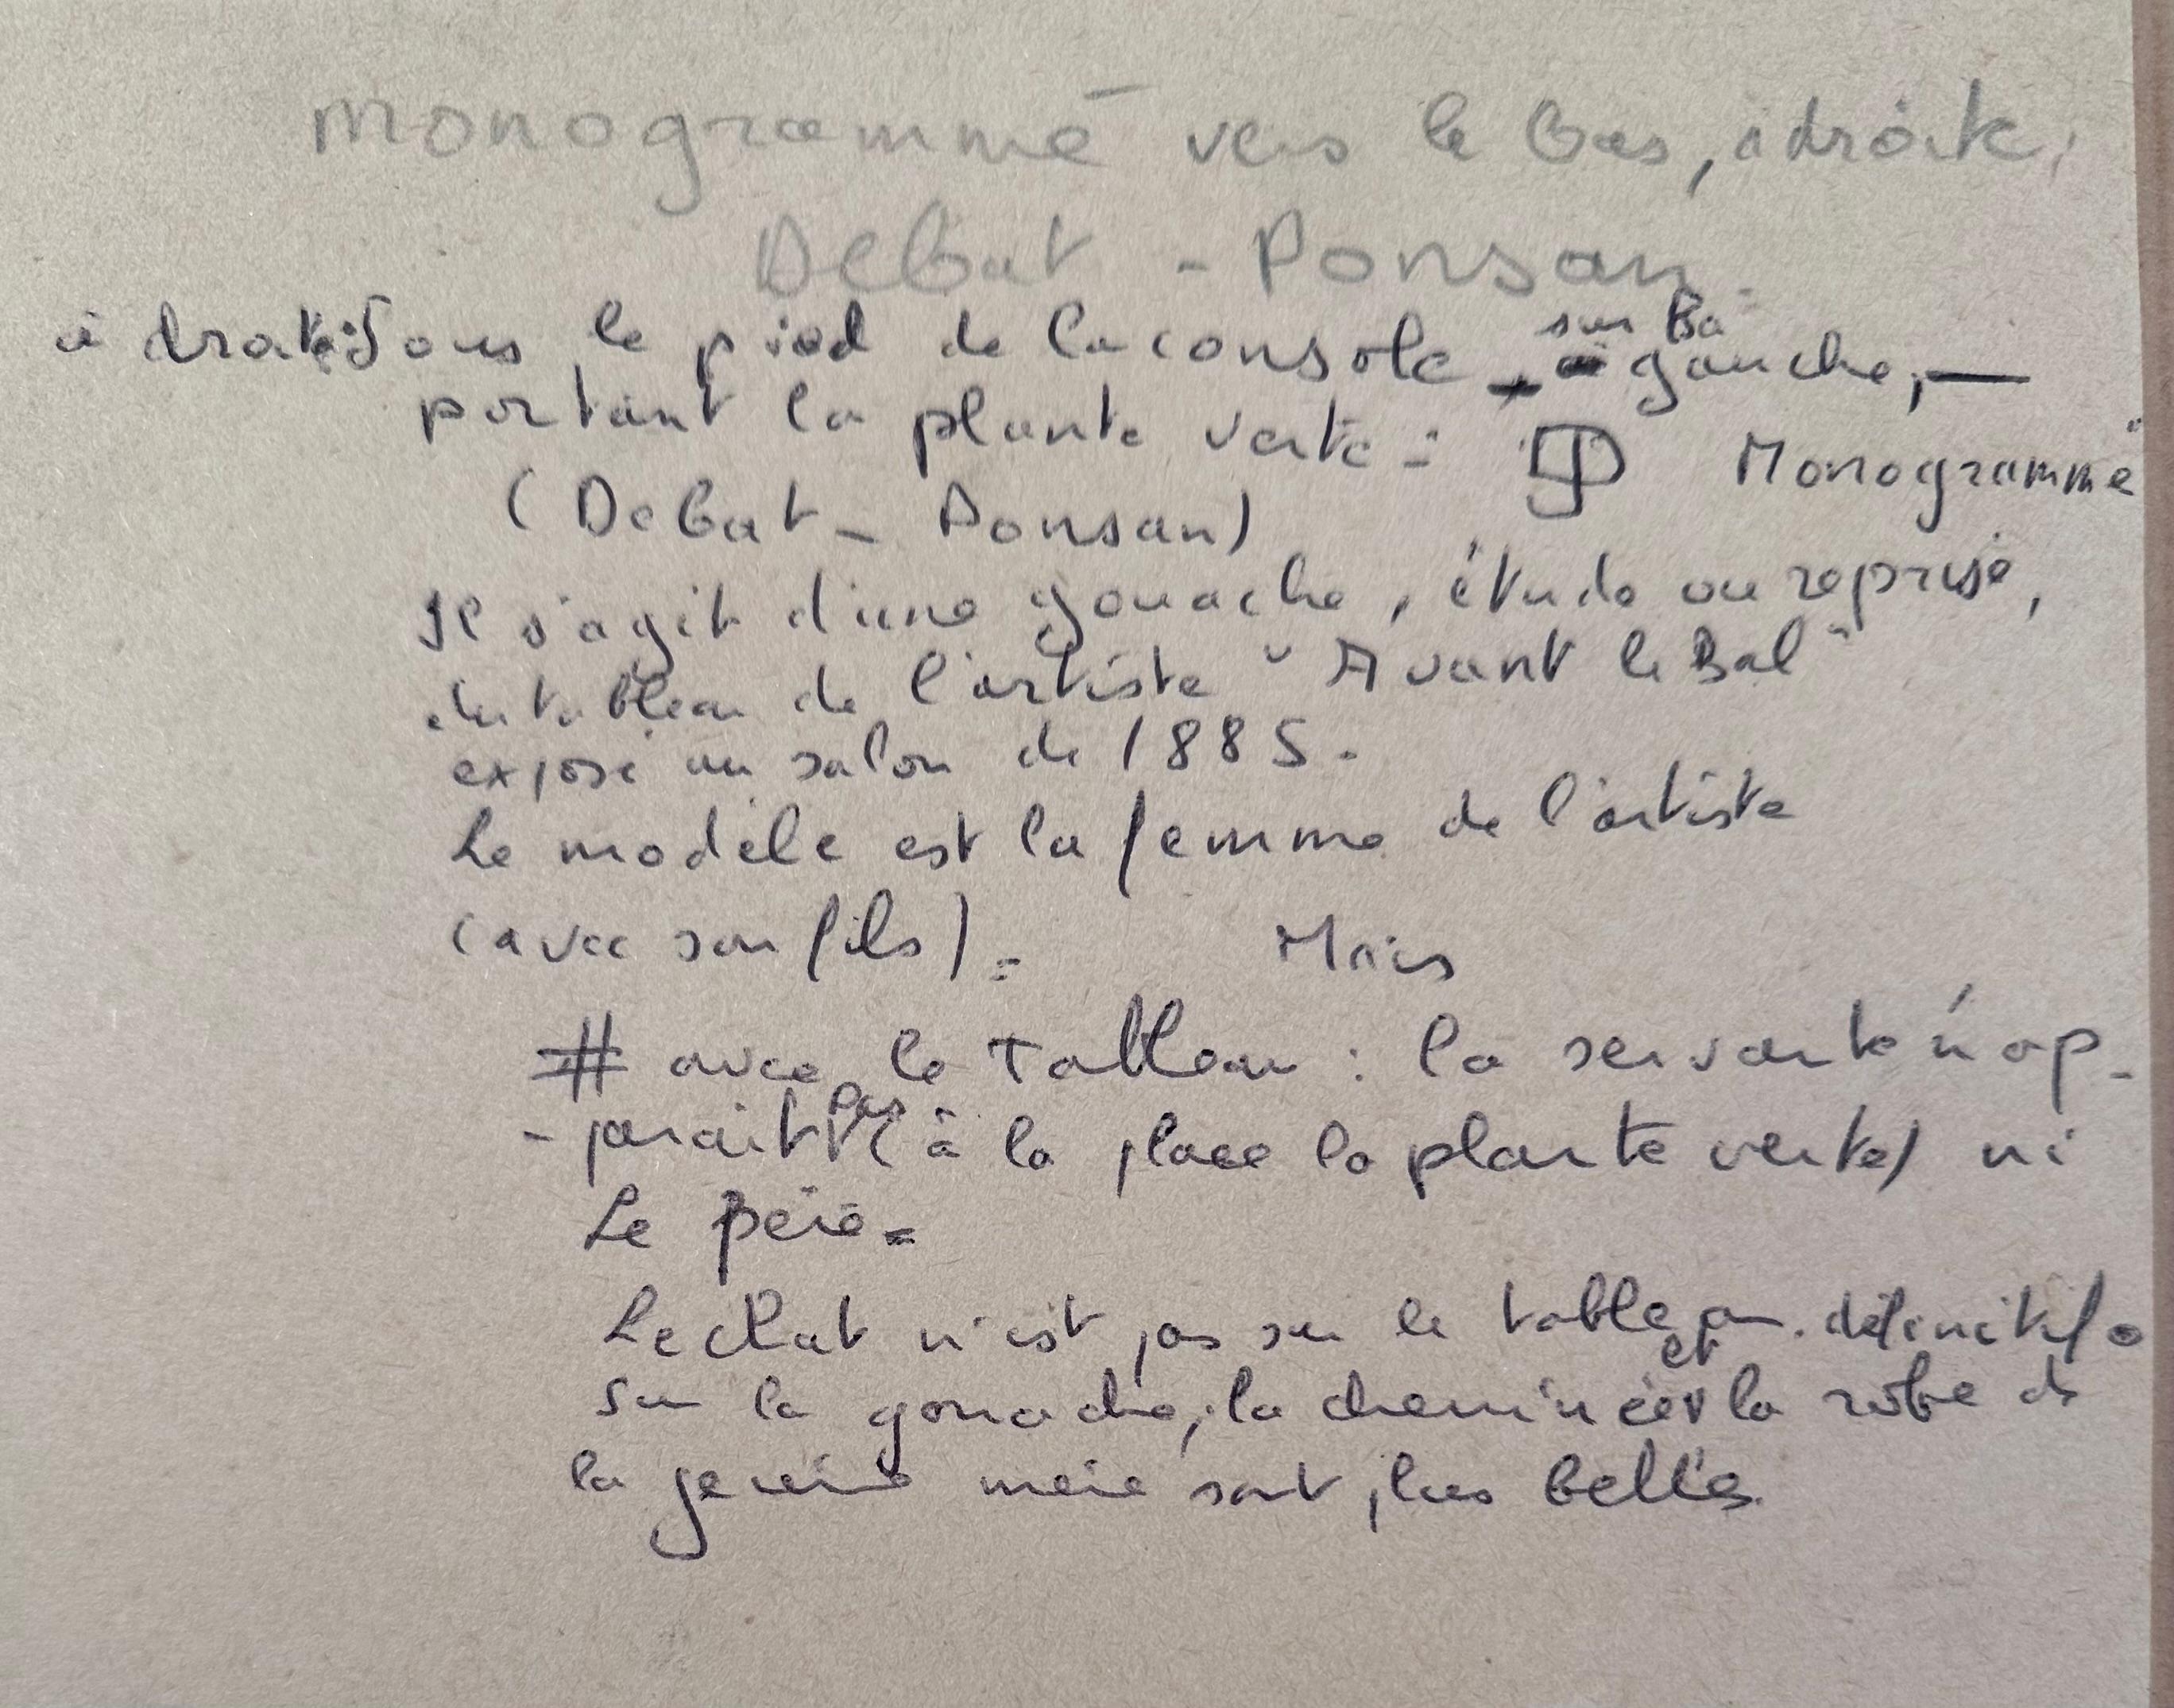 monogrammé vers le bas, à droite,
Debat - Ponsan.
à droite: Sous le pied de la console, sur la gauche, —
portant la plante verte : Monogrammé
(Debat - Ponsan)
Il s'agit d'une gouache, étude ou reprise,
du tableau de l'artiste "Avant le Bal"
exposé au salon de 1885.
Le modèle est la femme de l'artiste
(avec son fils). Mais
# avec le Tableau : la servante n'ap-
-parait pas (à la place la plante verte) ni
Le père.
Le chat n'est pas sur le tableau définitif.
Sur la gouache, la cheminée et la robe de
la jeune mère sont plus belles.